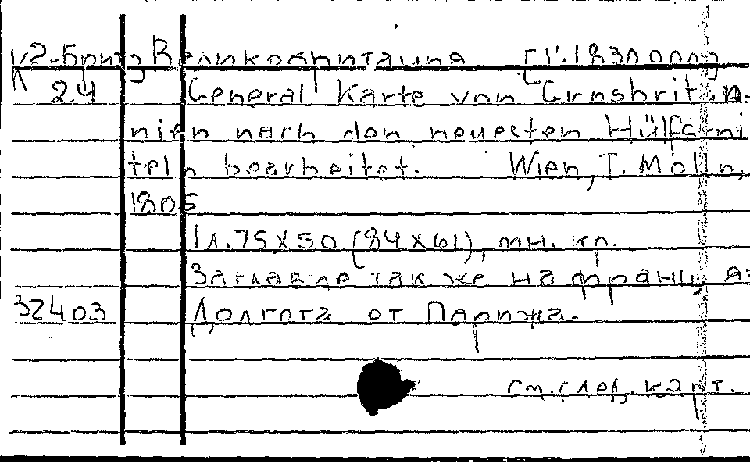 К2-Брит Великобритания [1:1830000]
24 General Karte von Grosbritan-
nien nach den neuesten Hülfsmi
teln bearbeitet. Wien, T. Mollo,
1805
1 л. 75х50 (84х61), мн. кр.
Заглавие так же на франц. яз
32403 Долгота от Парижа.
см. след. карт.